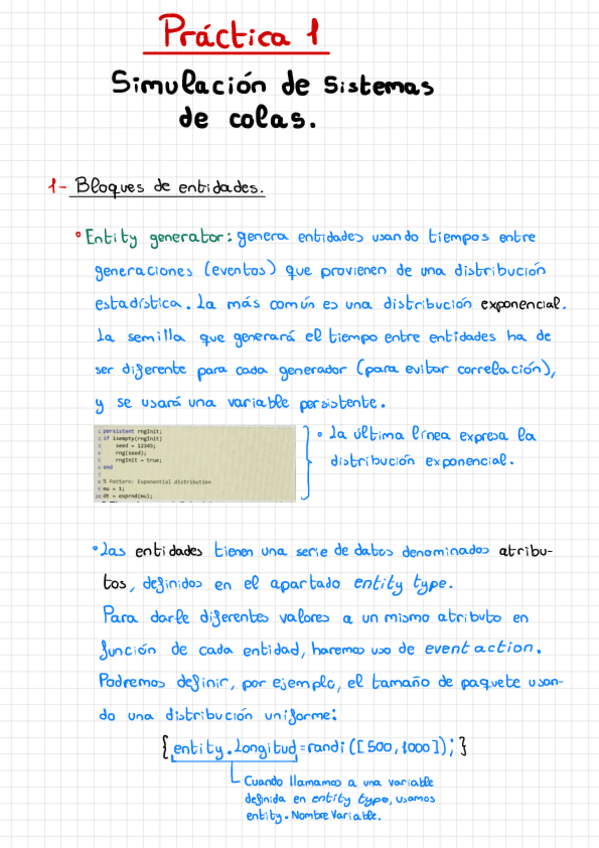 Práctica 1
Simulación de Sistemas
de colas.
1- Bloques de entidades.
Entity generator: genera entidades usando tiempos entre
generaciones (eventos) que provienen de una distribución
estadística. La más común es una distribución exponencial.
La semilla que generará el tiempo entre entidades ha de
ser diferente para cada generador (para evitar correlación),
y se usará una variable persistente.
1 persistent rngInit;
2 if isempty(rngInit)
3 seed = 12345;
4 rng(seed);
5 rngInit = true;
6 end
7
8 % Pattern: Exponential distribution
9 mu = 1;
10 dt = exprnd(mu);
La última línea expresa la
distribución exponencial.
Las entidades tienen una serie de datos denominados atribu-
tos, definidos en el apartado entity type.
Para darle diferentes valores a un mismo atributo en
función de cada entidad, haremos uso de event action.
Podremos definir, por ejemplo, el tamaño de paquete usan-
do una distribución uniforme:
{entity.Longitud=randi([500,1000]);}
Cuando llamamos a una variable
definida en entity type, usamos
entity.NombreVariable.